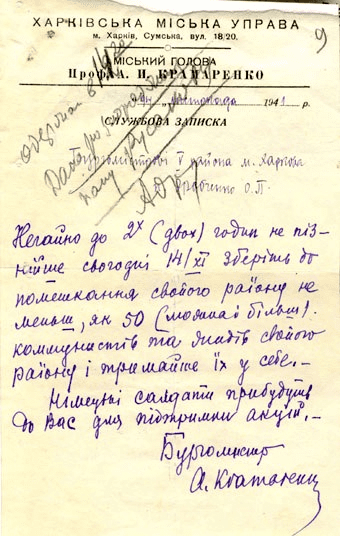 ХАРКІВСЬКА МІСЬКА УПРАВА
м. Харків, Сумська, вул. 18/20.
9
МІСЬКИЙ ГОЛОВА
Проф. А. И. КРАМАРЕНКО
листопада 1941 р.
СЛУЖБОВА ЗАПИСКА
V района м. Харкова
О.П.
Негайно до 2х (двох) годин не піз-
нійше сьогодні 14/XI зберіть до
помешкання свобого району не
меньш, як 50 (можна і більш).
коммуністів та жидів свойого
району і тримайте їх у себе.-
Німецькі салдати прибудуть
до Вас для підтримки акцій.-
Бургомистр